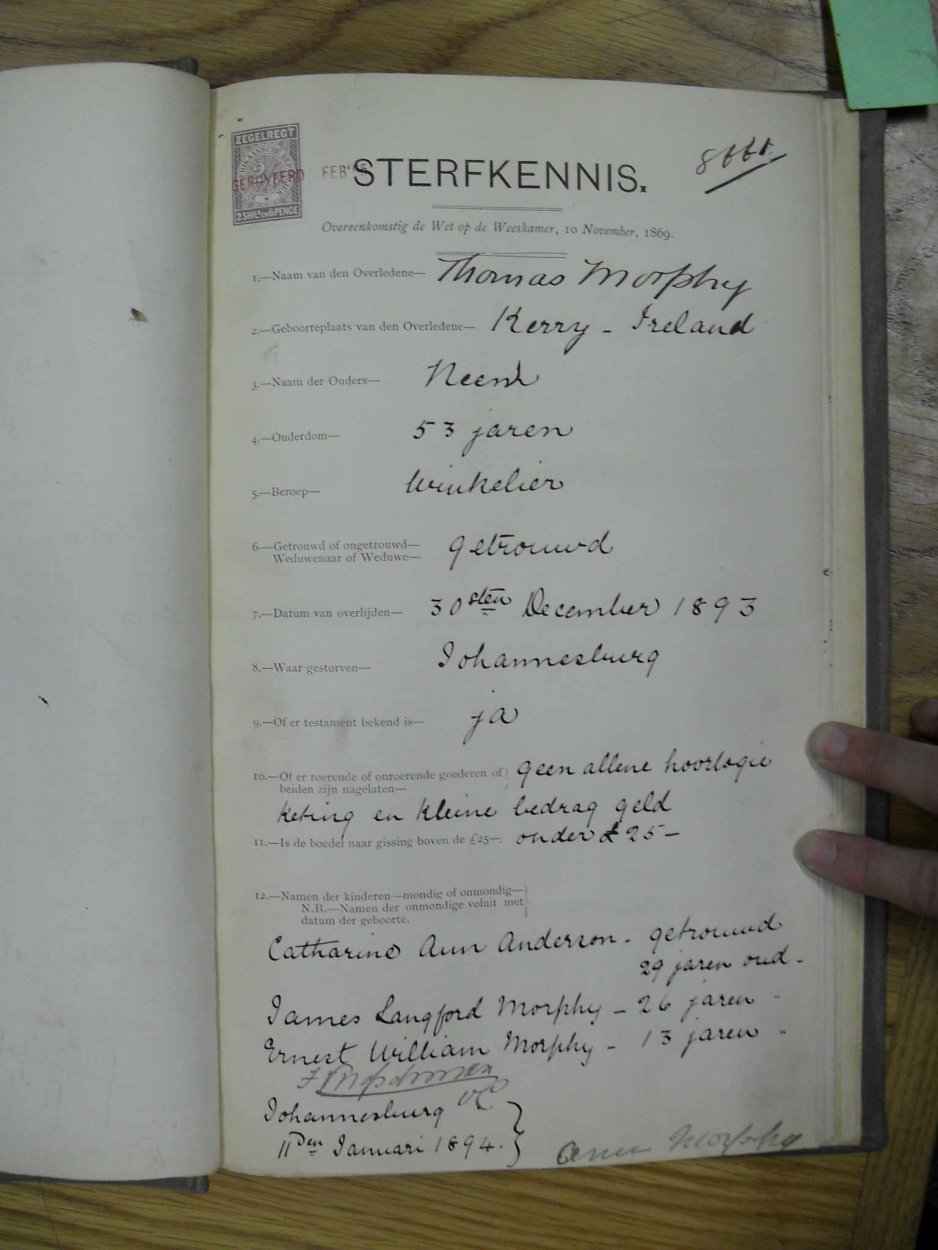 ZEGELREGT
GEROYEERD FEB'
2 SHILS EN 6 PENCE
8661.
STERFKENNIS.
Overeenkomstig de Wet op de Weeskamer, 10 November, 1869.
1.—Naam van den Overledene— Thomas Morphy
2.—Geboorteplaats van den Overledene— Kerry - Ireland
3.—Naam der Ouders—
4.—Ouderdom— 53 jaren
5.—Beroep— Winkelier
6.—Getrouwd of ongetrouwd—
Weduwenaar of Weduwe— getrouwd
7.—Datum van overlijden— 30sten December 1893
8.—Waar gestorven— Johannesburg
9.—Of er testament bekend is— ja
10.—Of er roerende of onroerende goederen of geen allene hoorlogie
beiden zijn nagelaten—
keting en kleine bedrag geld
11.—Is de boedel naar gissing boven de £25— onder £25—
12.—Namen der kinderen—mondig of onmondig—
N.B.—Namen der onmondige voluit met
datum der geboorte.
Catharine Ann Anderson - getrouwd
29 jaren oud -
James Langford Morphy - 26 jaren -
Ernest William Morphy - 13 jaren -
Johannesburg
11den Januari 1894.
Ann Morphy